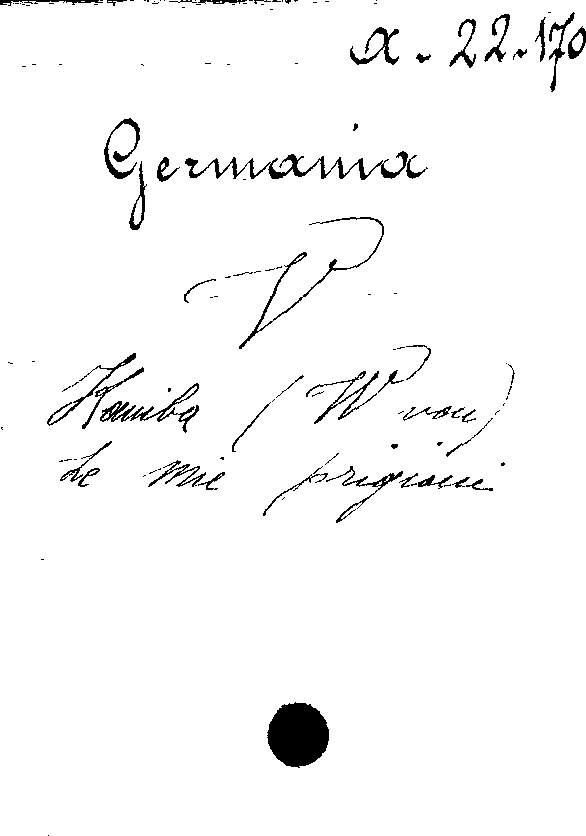 α. 22.170
Germania
V
Kaniba (W von)
Le mie prigioni